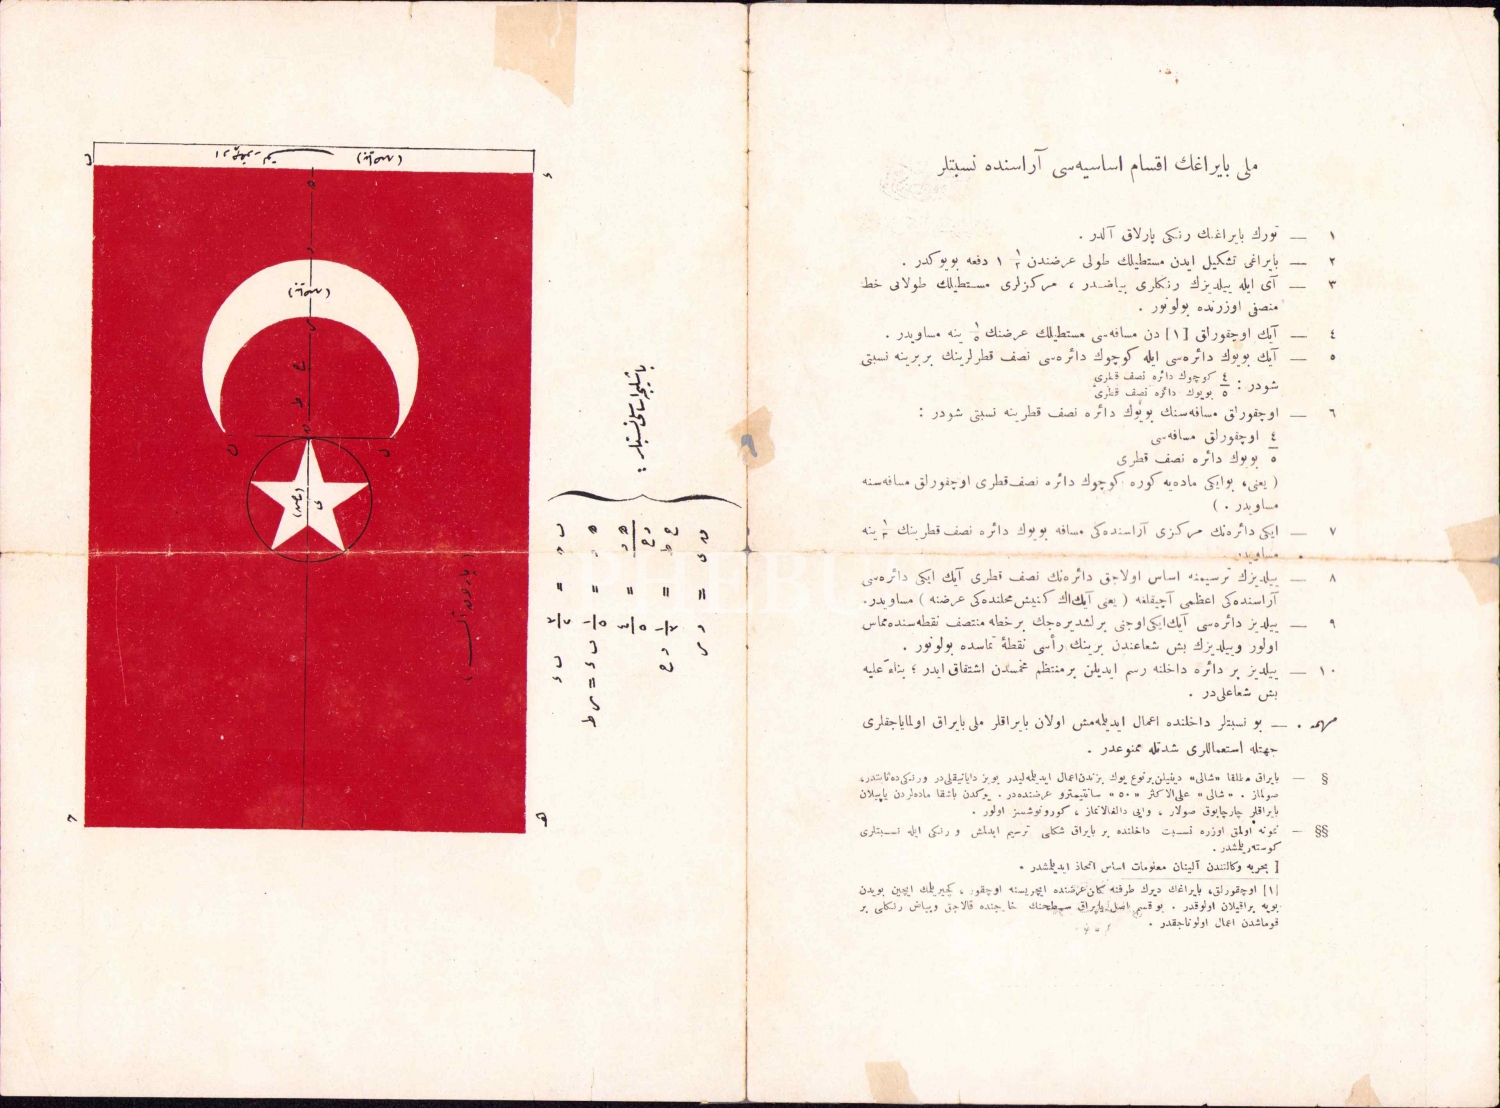 ملی بایراغك اقسام اساسیه‌سی آراسنده نسبتلر
١ — تورك بایراغنك رنكی پارلاق آلدر .
٢ — بایراغی تشكیل ایدن مستطیلك طولی عرضندن ١/٢ ١ دفعه بویوكدر .
٣ — آی ایله ییلدیزك رنكلری بیاضدر ، مركزلری مستطیلك طولانی خط
منصفی اوزرنده بولونور .
٤ — آیك اوچقورلق [١] دن مسافه‌سی مستطیلك عرضنك ١/٥ ینه مساویدر .
٥ — آیك بویوك دائره‌سی ایله كوچوك دائره‌سی نصف قطرلرینك بربرینه نسبتی
شودر : ٤/٥ كوچوك دائره نصف قطری
بویوك دائره نصف قطری
٦ — اوچقورلق مسافه‌سنك بویوك دائره نصف قطرینه نسبتی شودر :
٤ اوچقورلق مسافه‌سی
٥ بویوك دائره نصف قطری
( یعنی، بوایكی ماده‌یه كوره كوچوك دائره نصف‌قطری اوچقورلق مسافه‌سنه
مساویدر . )
٧ — ایكی دائره‌نك مركزی آراسنده‌كی مسافه بویوك دائره نصف قطرینك ینه
مساویدر .
٨ — ییلدیزك ترسیمنه اساس اولاجق دائره‌نك نصف قطری آیك ایكی دائره‌سی
آراسنده‌كی اعظمی آچیقلغه ( یعنی آیك‌اك كنیش محلنده‌كی عرضنه ) مساویدر.
٩ — ییلدیز دائره‌سی آیك‌ایكی‌اوجنی برلشدیره‌جك برخطه منتصف نقطه‌سنده‌مماس
اولور وییلدیزك بش شعاعندن برینك رأسی نقطهٔ تماسده بولونور .
١٠ — ییلدیز بر دائره داخلنه رسم ایدیلن برمنتظم مخمسدن اشتقاق ایدر ؛ بناءً علیه
بش شعاعلی‌در .
مهمه . — بو نسبتلر داخلنده اعمال ایدیله‌مش اولان بایراقلر ملی بایراق اولمایاجقلری
جهتله استعماللری شدتله ممنوعدر .
§ — بایراق مطلقا «شالی» دینیلن‌برنوع یوك بزندن‌اعمال ایدیلملیدر بوبز دایانیقلی‌در ورنكی‌ده‌ثابتدر،
صولماز . «شالی» علی‌الاكثر «٥٠» سانتیمترو عرضنده‌در . یوكدن باشقا ماده‌لردن یاپیلان
بایراقلر چارچابوق صولار ، وایی دالغالانماز ، كورونوشسز اولور .
§§ — نمونه اولمق اوزره نسبت داخلنده بر بایراق شكلی ترسیم ایدلمش و رنكی ایله نسبتلری
كوسته‌ریلمشدر .
[ بحریه وكالتندن آلینان معلومات اساس اتخاذ ایدیلمشدر .
[١] اوچقورلق، بایراغك دیرك طرفنه كلن‌عرضنده ایچریسنه اوچقور ، كچیریلمك ایچین بویدن
بویه براقیلان اولوقدر . بوقسم اصل بایراق سطحنك خارجنده قالاجق وبیاض رنكلی بر
قوماشدن اعمال اولوناجقدر .
( بیاض )
( بیاض )
( بیاض )
( پارلاق آل )
باشلیجه اساسلی نسبتلر :
PHEBUS